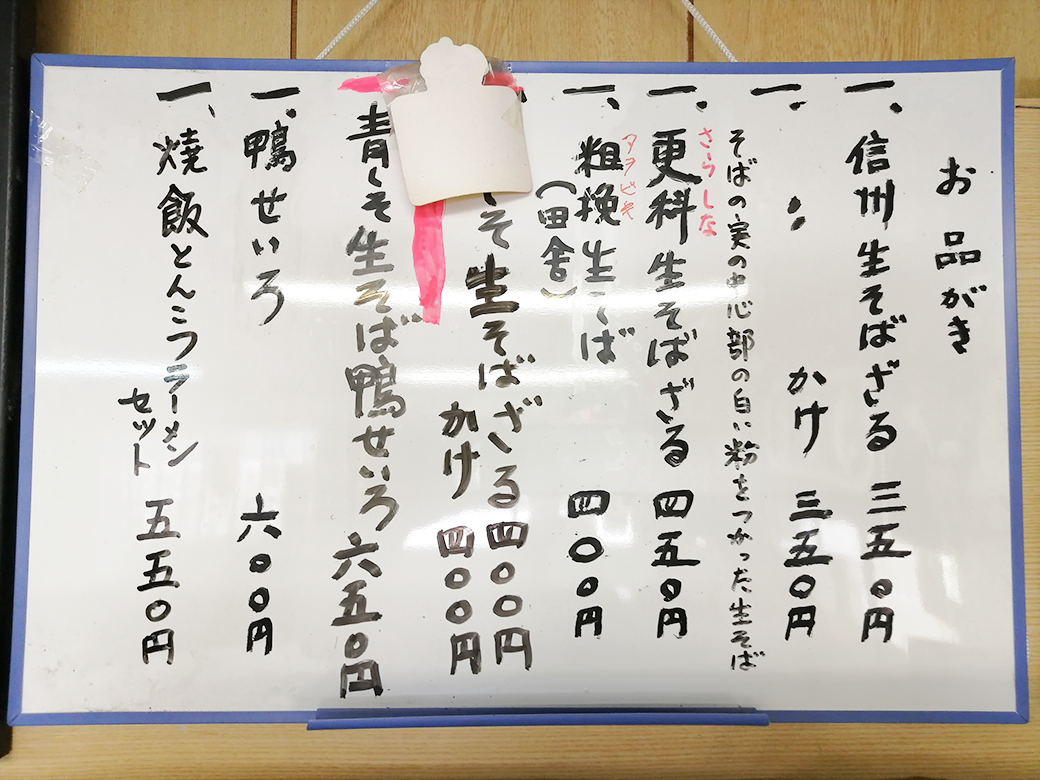 お品がき
一、信州生そばざる 三五〇円
一、〃 かけ 三五〇円
そばの実の中心部の白い粉をつかった生そば
さらしな
一、更科生そばざる 四五〇円
アラビキ
一、粗挽生そば 四〇〇円
(田舎)
そ生そばざる四〇〇円
かけ 四〇〇円
青じそ生そば鴨せいろ六五〇円
一、鴨せいろ 六〇〇円
一、焼飯とんこつラーメン
セット 五五〇円